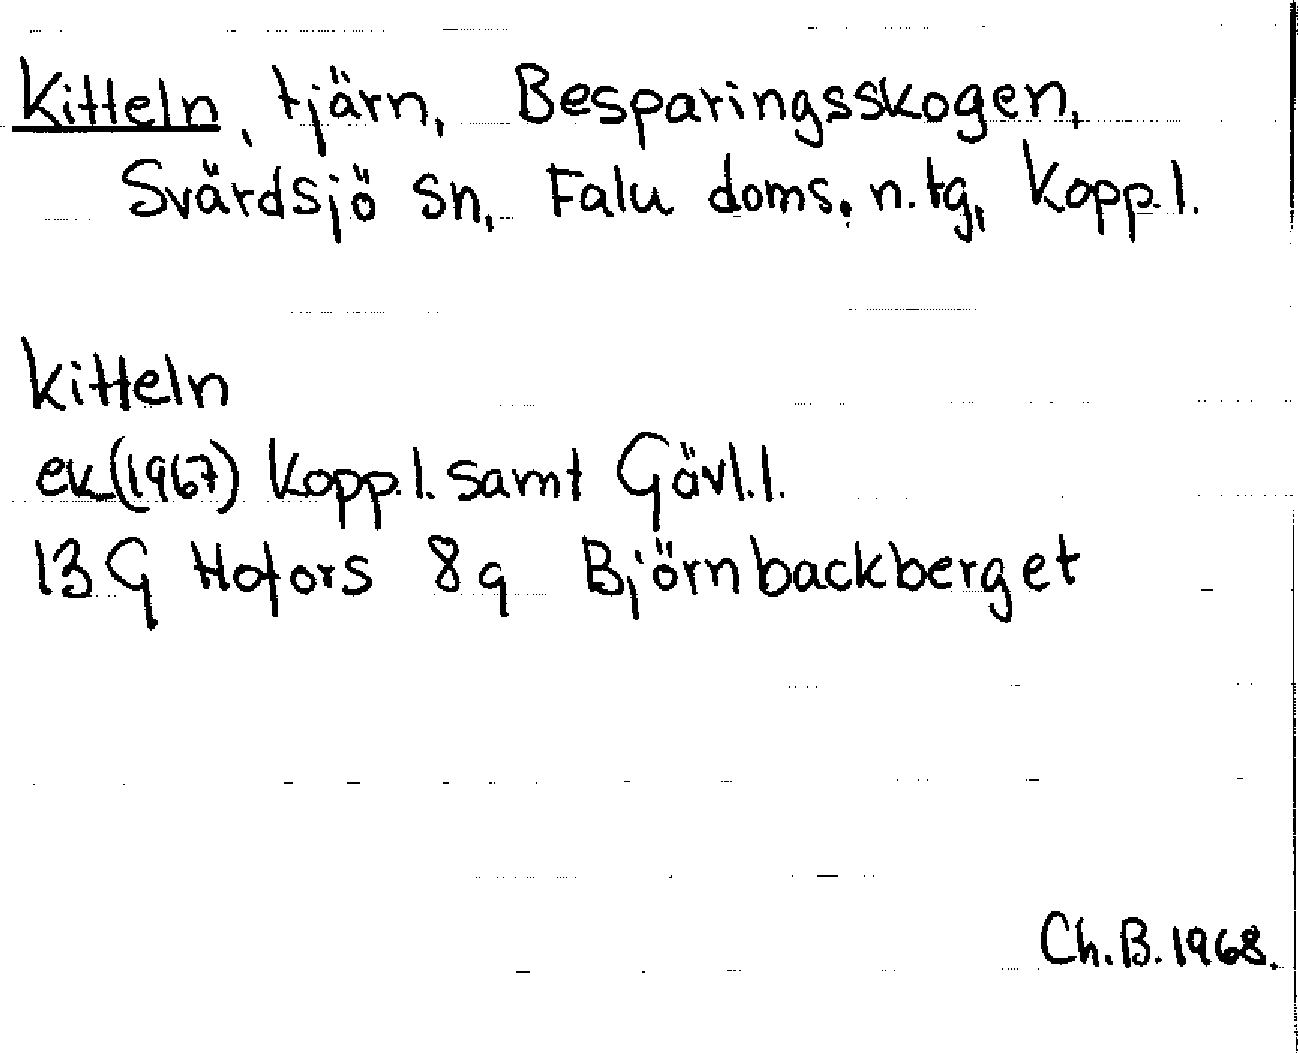 Kitteln, tjärn, Besparingsskogen,
Svärdsjö sn, Falu doms. n. tg, Kopp. l.
Kitteln
ek (1967) Kopp. l. samt Gävl. l.
13 G Hofors 8g Björnbackberget
Ch. B. 1968.